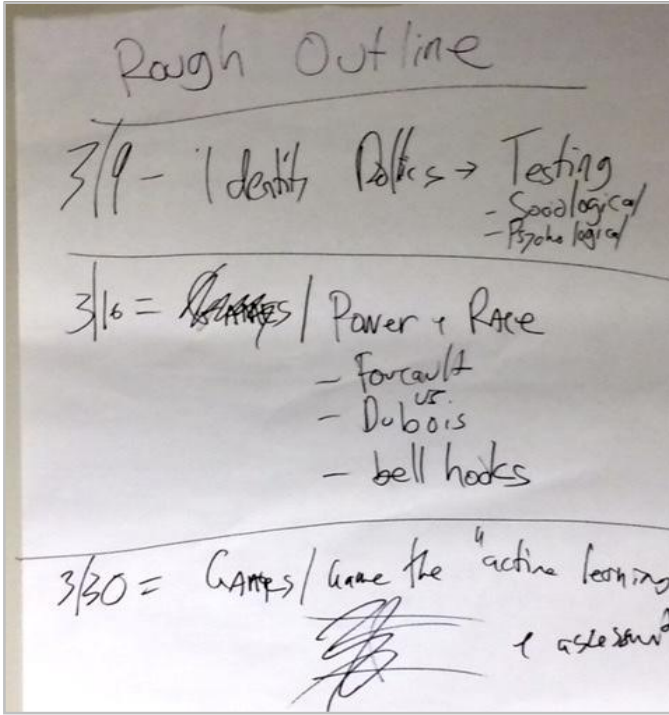 Rough Outline
3/9 - Identity Politics → Testing
- Sociological
- Psychological
3/16 = / Power + Race
- Foucault
vs.
- Dubois
- bell hooks
3/30 = GAMES / Game the "active learning
+ assessm